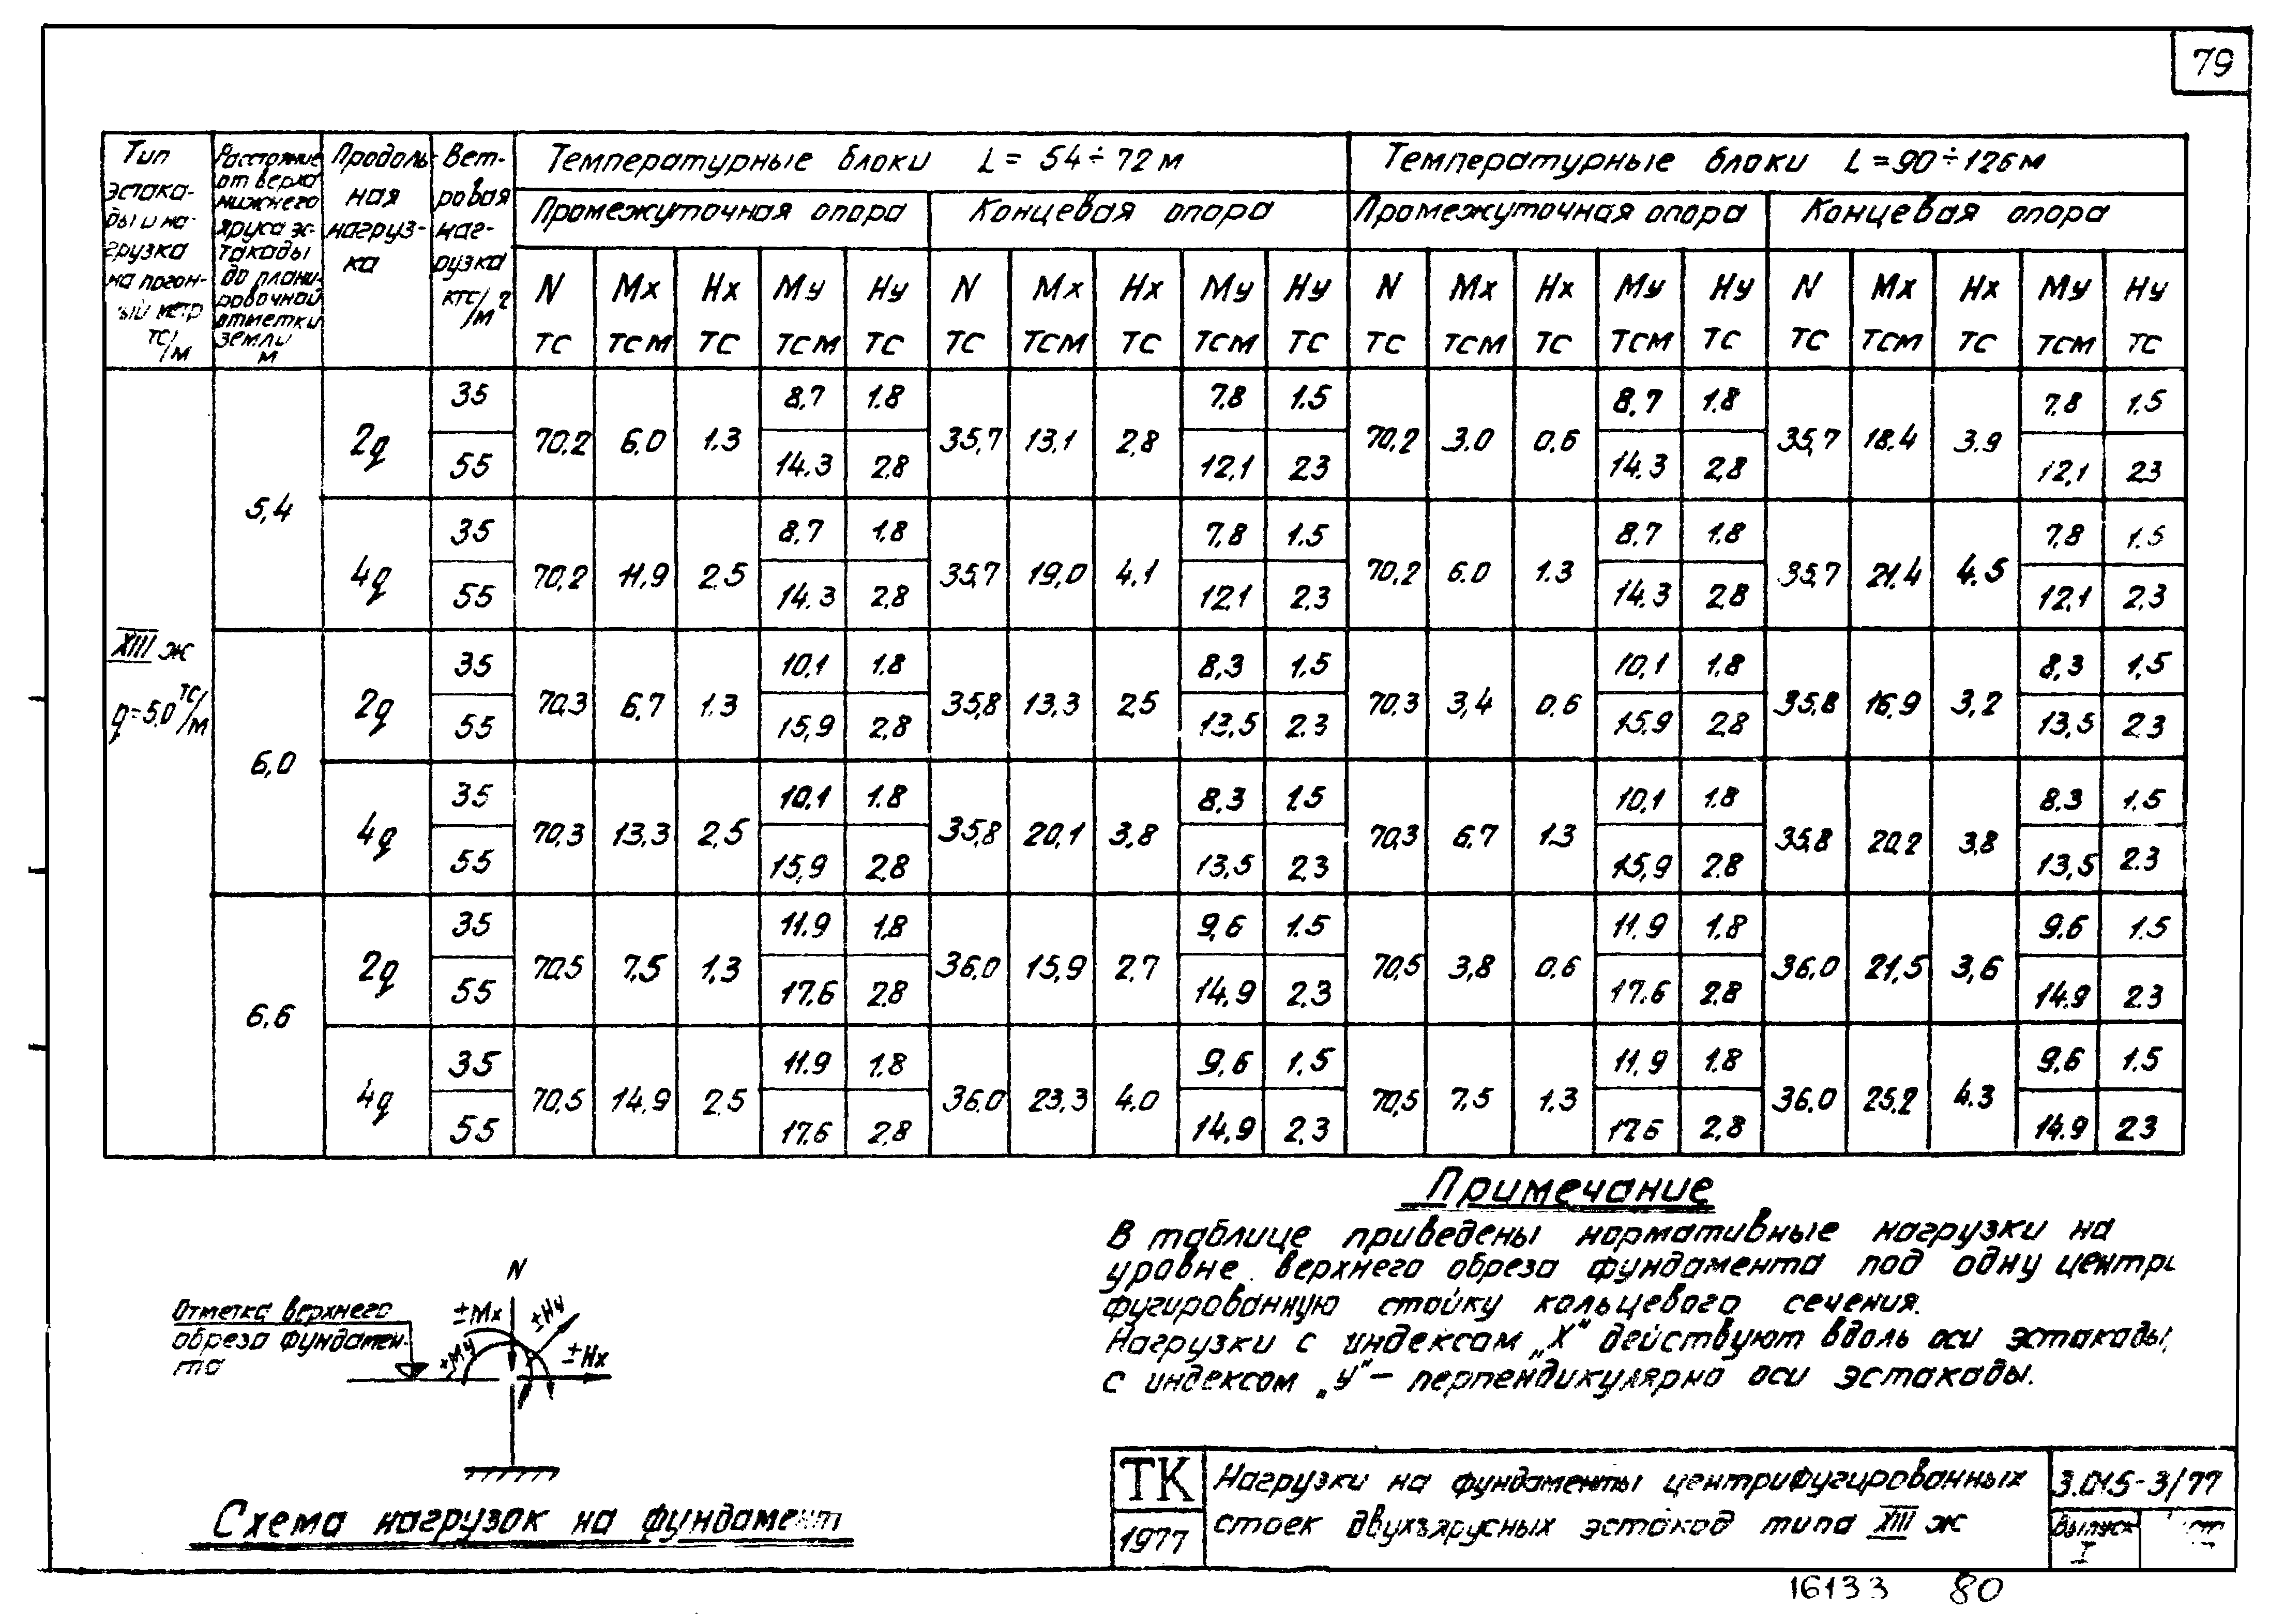 79
Тип эстакады и нагрузка на погонный метр ТС/М
Расстояние от верха нижнего яруса эстакады до планировочной отметки земли м
Продольная нагрузка
Ветровая нагрузка кгс/м²
Температурные блоки L = 54÷72 м
Температурные блоки L = 90÷126 м
Промежуточная опора Концевая опора Промежуточная опора Концевая опора
N Mx Hx My Hy N Mx Hx My Hy N Mx Hx My Hy N Mx Hx My Hy
ТС ТСМ ТС ТСМ ТС ТС ТСМ ТС ТСМ ТС ТС ТСМ ТС ТСМ ТС ТС ТСМ ТС ТСМ ТС
XIII ж
q=5,0 ТС/М
5,4
2q
35 8,7 1.8 7,8 1.5 8,7 1.8 7,8 1.5
70,2 6,0 1.3 35,7 13,1 2,8 70,2 3.0 0.6 35,7 18.4 3.9
55 14.3 2,8 12,1 2,3 14.3 2,8 12,1 2,3
4q
35 8,7 1.8 7,8 1.5 8,7 1.8 7,8 1.5
70,2 11,9 2,5 35,7 19,0 4,1 70,2 6.0 1.3 35,7 21,4 4.5
55 14.3 2,8 12,1 2,3 14.3 2,8 12,1 2,3
6,0
2q
35 10,1 1.8 8,3 1.5 10,1 1.8 8,3 1,5
70,3 6,7 1.3 35,8 13,3 2,5 70,3 3,4 0,6 35,8 16,9 3,2
55 15,9 2,8 13,5 2,3 15,9 2,8 13,5 2,3
4q
35 10,1 1.8 8,3 1.5 10,1 1.8 8.3 1.5
70,3 13,3 2,5 35,8 20,1 3,8 70,3 6,7 1.3 35,8 20,2 3,8
55 15,9 2,8 13,5 2,3 15,9 2.8 13,5 2.3
6,6
2q
35 11.9 1,8 9,6 1.5 11.9 1.8 9.6 1.5
70,5 7,5 1,3 36,0 15,9 2,7 70,5 3,8 0,6 36,0 21,5 3,6
55 17,6 2,8 14,9 2,3 17.6 2.8 14.9 2,3
4q
35 11.9 1.8 9,6 1,5 11,9 1.8 9,6 1.5
70,5 14,9 2,5 36,0 23,3 4.0 70,5 7.5 1.3 36,0 25,2 4.3
55 17,6 2,8 14,9 2,3 17,6 2,8 14.9 2,3
Примечание
В таблице приведены нормативные нагрузки на
уровне верхнего обреза фундамента под одну центри
фугированную стойку кольцевого сечения.
Нагрузки с индексам „X" действуют вдоль оси эстакады,
с индексом „У" – перпендикулярно оси эстакады.
N
±Mx
±Hy
±My
±Hx
Отметка верхнего
обреза фундамен-
та
Схема нагрузок на фундамент
ТК
1977
Нагрузки на фундаменты центрифугированных
стоек двухъярусных эстакад типа XIII ж
3.015-3/77
Выпуск
I
16133 80